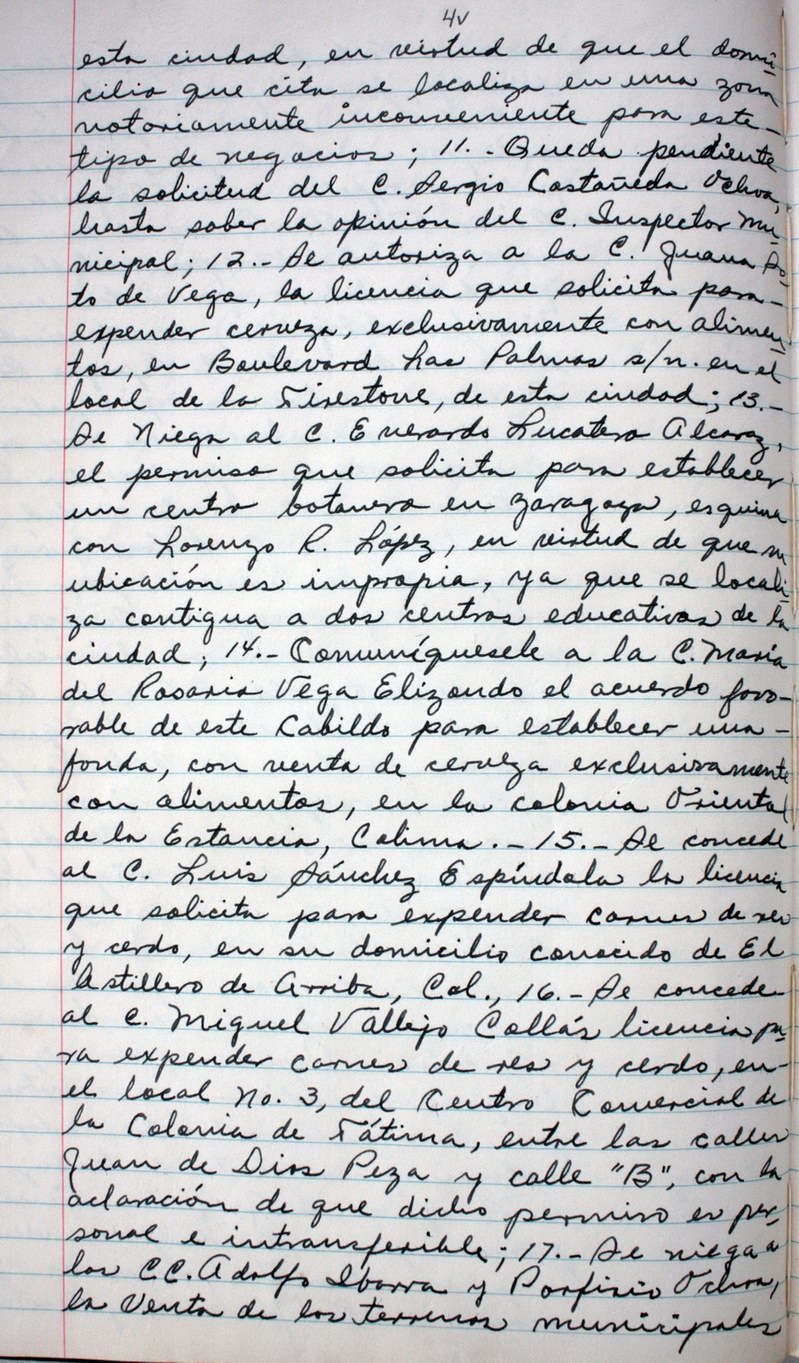 4v
esta ciudad, en virtud de que el domi-
cilio que cita se localiza en una zona
notoriamente inconveniente para este-
tipo de negocios; 11.- Queda pendiente
la solicitud del C. Sergio Castañeda Ochoa,
hasta saber la opinión del C. Inspector Mu-
nicipal; 12.- Se autoriza a la C. Juana So-
to de Vega, la licencia que solicita para-
expender cerveza, exclusivamente con alimen-
tos, en Boulevard Las Palmas s/n. en el
local de la Firestone, de esta ciudad; 13.-
Se Niega al C. Everardo Lucatero Alcaraz,
el permiso que solicita para establecer
un centro botanero en Zaragoza, esquina
con Lorenzo R. López, en virtud de que su
ubicación es impropia, ya que se locali-
za contigua a dos centros educativos de la
ciudad; 14.- Comuníquesele a la C. María
del Rosario Vega Elizondo el acuerdo favo-
rable de este Cabildo para establecer una-
fonda, con venta de cerveza exclusivamente
con alimentos, en la colonia Oriental
de la Estancia, Colima.- 15.- Se concede
al C. Luis Sánchez Espíndola la licencia
que solicita para expender carnes de res
y cerdo, en su domicilio conocido de El
Astillero de Arriba, Col., 16.- Se concede
al C. Miguel Vallejo Collás licencia pa-
ra expender carnes de res y cerdo, en-
el local No. 3, del Centro Comercial de
la Colonia de Fátima, entre las calles
Juan de Dios Peza y calle "B", con la
aclaración de que dicho permiso es per-
sonal e intransferible; 17.- Se niega a
los CC. Adolfo Ibarra y Porfirio Ochoa,
la Venta de los terrenos municipales